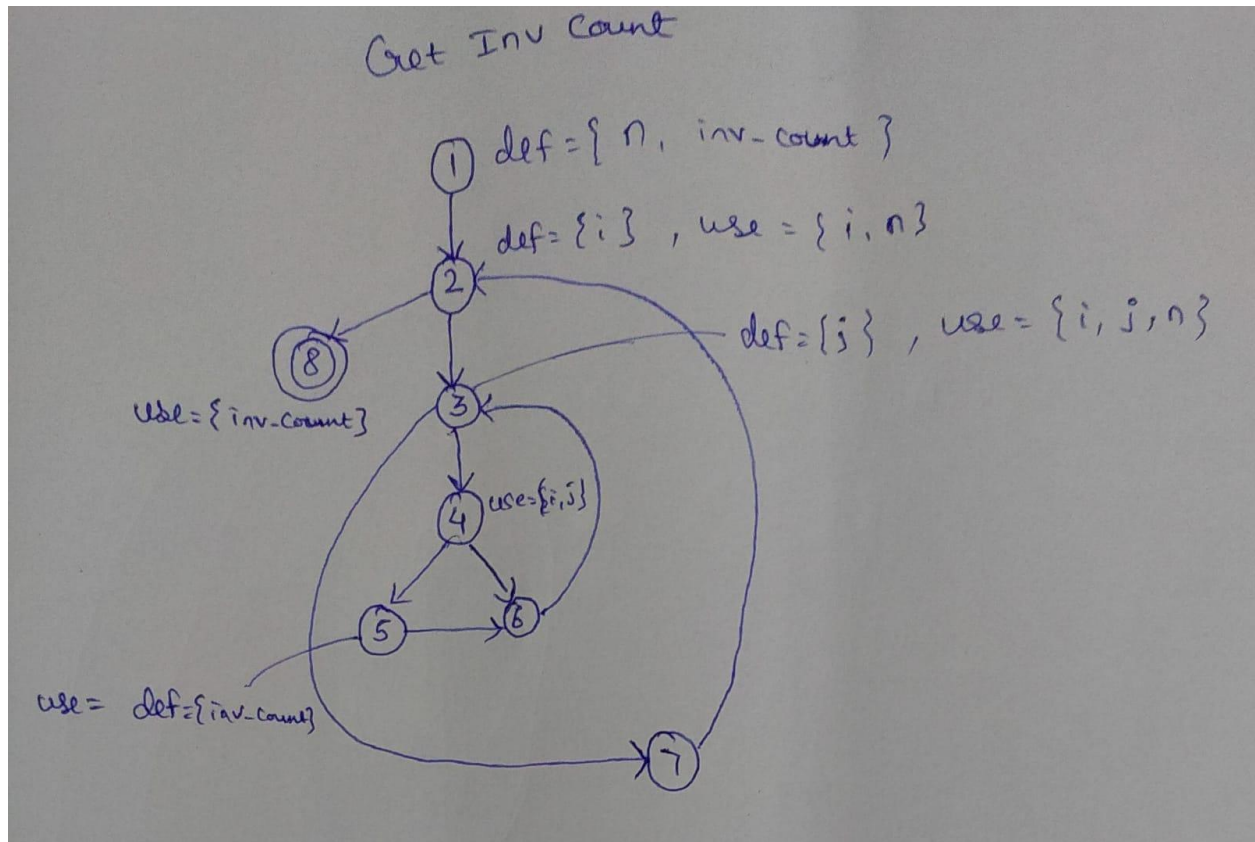 Get Inv Count
1 def = { n, inv-count }
def = {i} , use = {i, n}
2
def = {j} , use = {i, j, n}
8
3
use = {inv-count}
4 use={i,j}
5
6
use = def={inv-count}
7